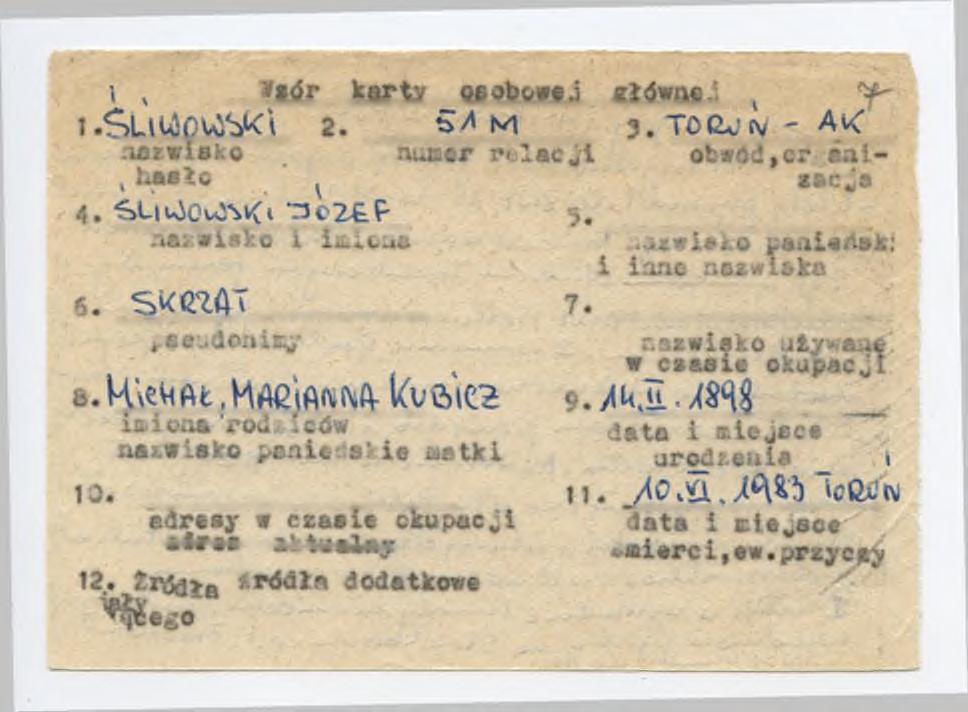 Wzór karty osobowej głównej 7
1. ŚLIWOWSKI 2. 51 M 3. TORUŃ - AK
nazwisko numer relacji obwód, organi-
hasło zacja
4. ŚLIWOWSKI JÓZEF 5.
nazwisko i imiona nazwisko panieńsk
i inne nazwiska
6. SKRZAT 7.
pseudonimy nazwisko używane
w czasie okupacji
8. MICHAŁ, MARIANNA KUBICZ 9. 14.II.1898
imiona rodziców data i miejsce
nazwisko panieńskie matki urodzenia
10. 11. 10.VI.1983 TORUŃ
adresy w czasie okupacji data i miejsce
adres aktualny śmierci, ew. przyczy
12. Źródła źródła dodatkowe